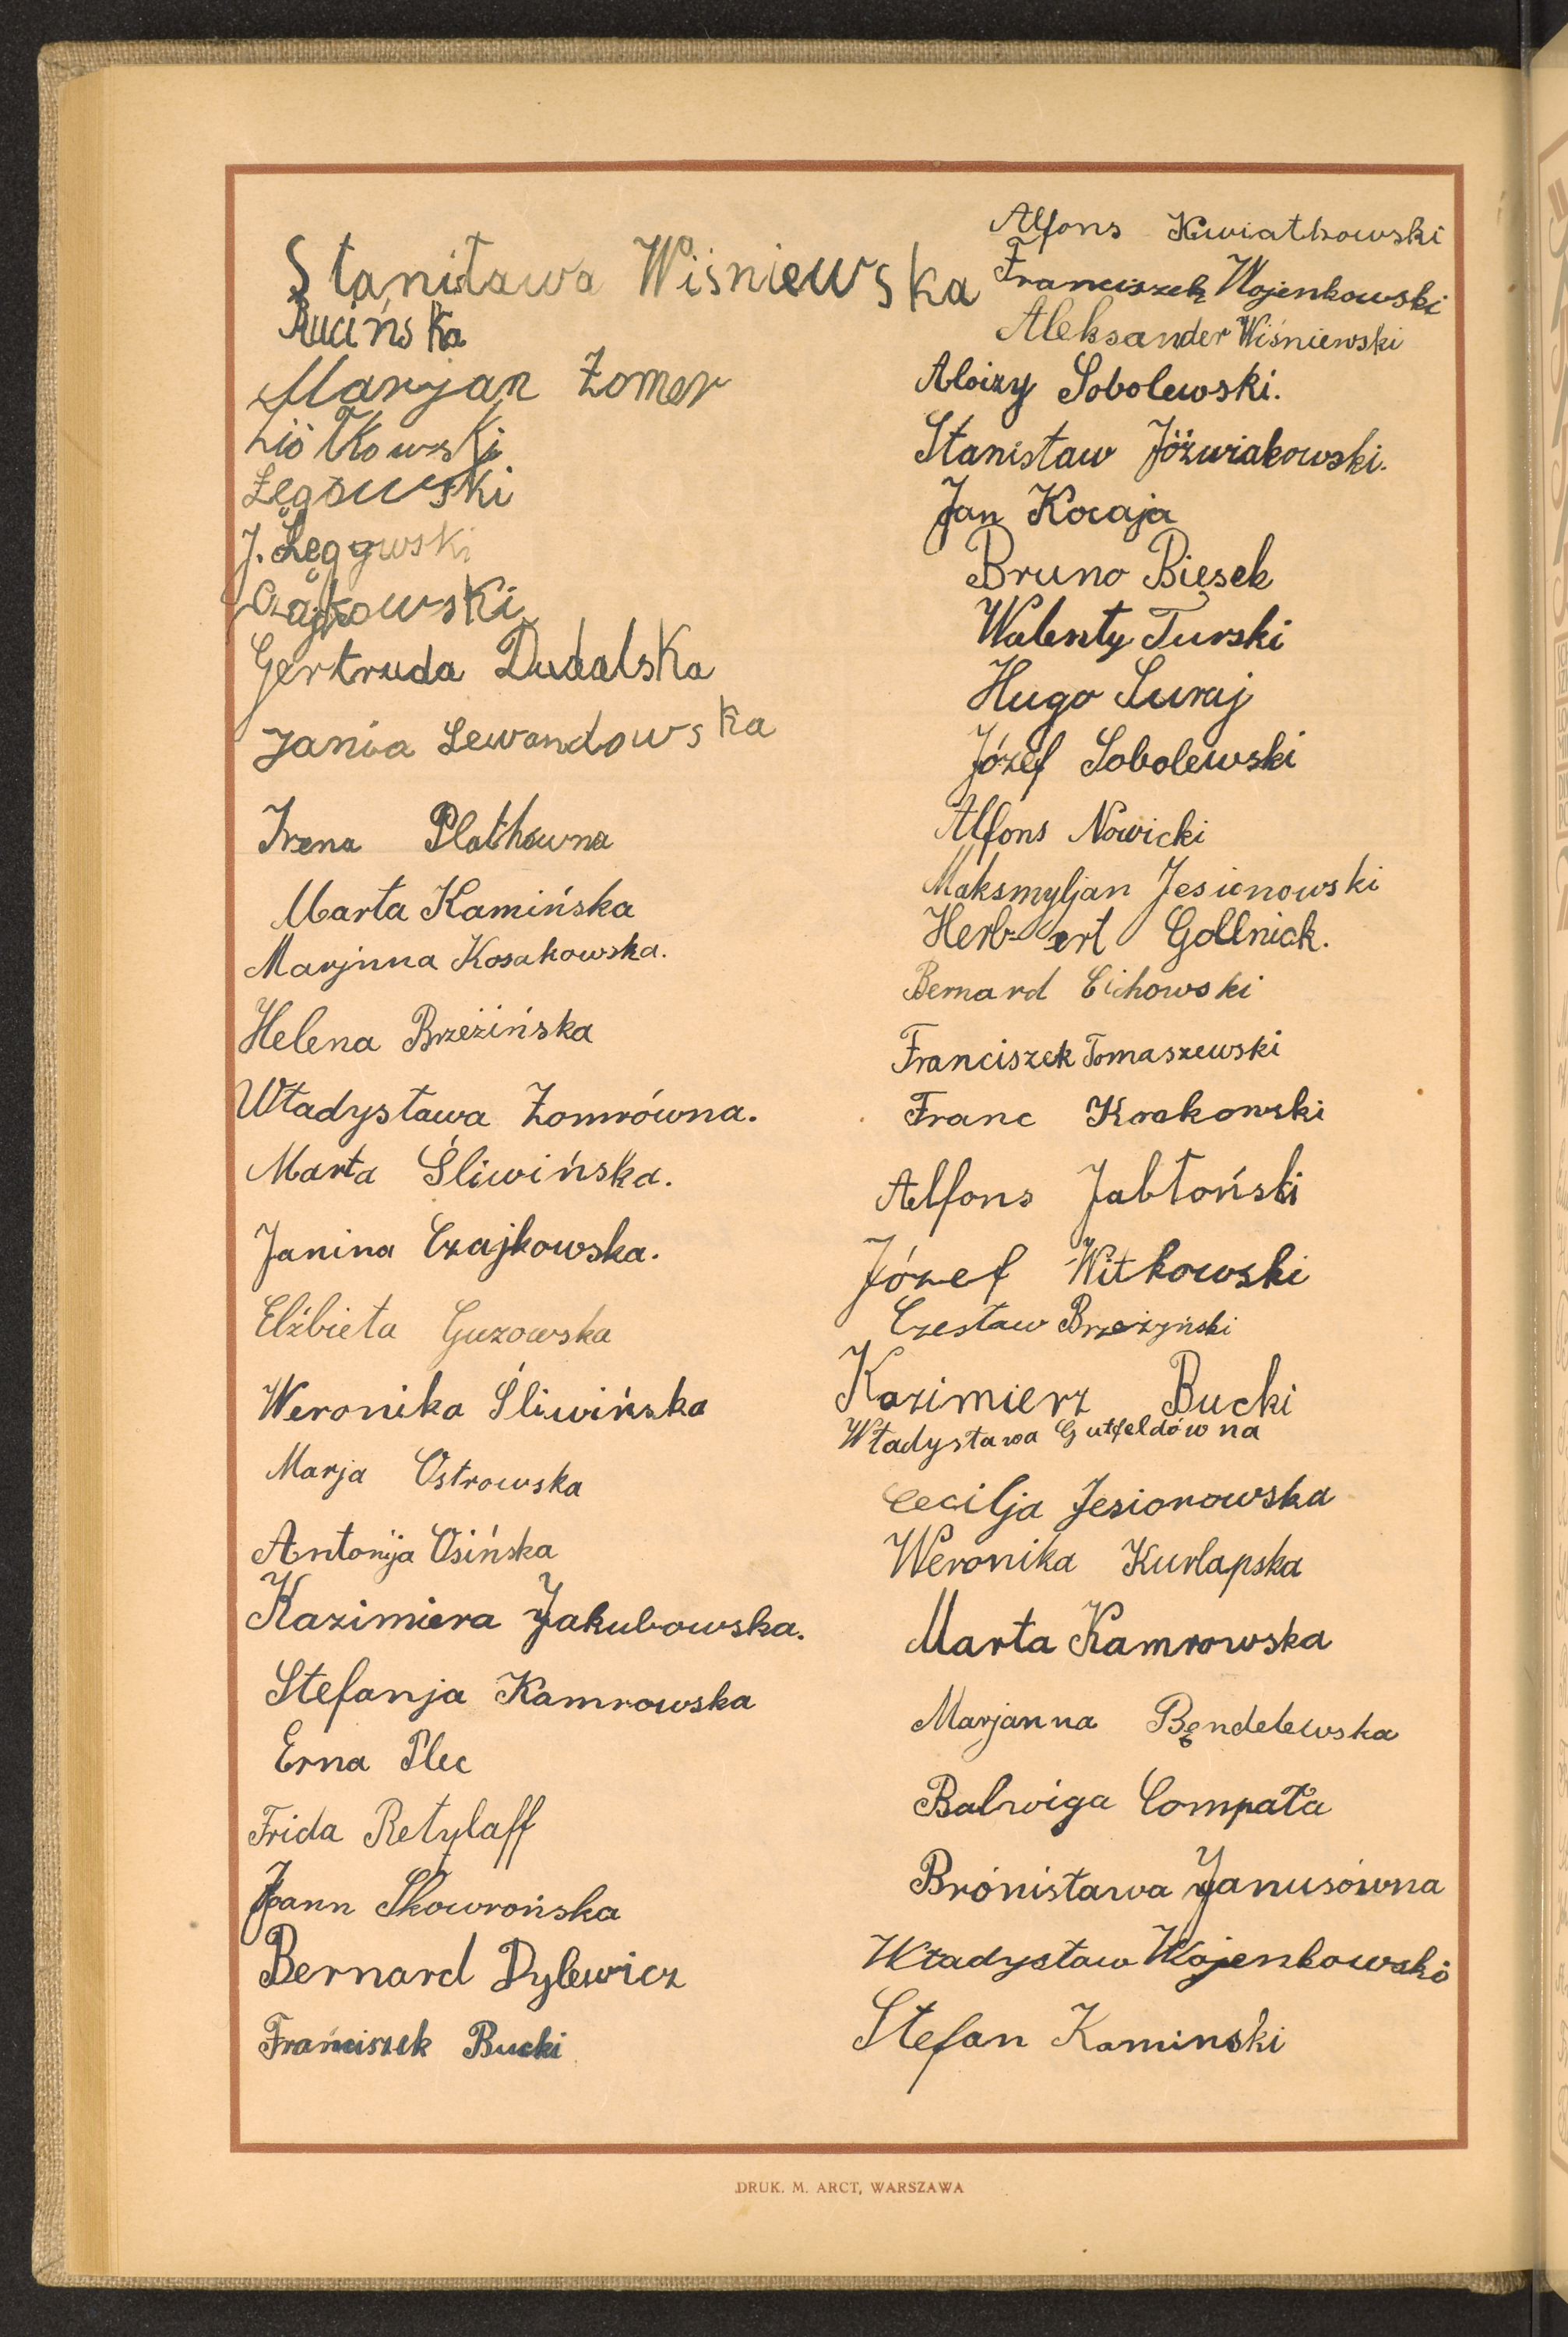 Stanitawa Wiśniewska
Rucińska
Marjan Żomer
Ziółkowski
Łęgowski
J. Łęgowski
Czajkowski
Gertruda Dudalska
Jania Lewandowska
Irena Plathówna
Marta Kamińska
Marjnna Kosakowska.
Helena Brzezińska
Władysława Żomrówna.
Marta Śliwińska.
Janina Czajkowska.
Elżbieta Guzowska
Weronika Śliwińska
Marja Ostrowska
Antonija Osińska
Kazimiera Jakubowska.
Stefanja Kamrowska
Erna Plec
Frida Retylaff
Joann Skowrońska
Bernard Dylewicz
Franciszek Bucki
Alfons Kwiatkowski
Franciszek Wojenkowski
Aleksander Wiśniewski
Aloizy Sobolewski.
Stanisław Jóźwiakowski.
Jan Kocaja
Bruno Biesek
Walenty Turski
Hugo Suraj
Józef Sobolewski
Alfons Nowicki
Maksmyljan Jesionowski
Herb-ert Gollnick.
Bernard Cichowski
Franciszek Tomaszewski
Franc Krakowski
Alfons Jabłoński
Józef Witkowski
Czesław Brzezyński
Kazimierz Bucki
Władysława Gutfeldówna
Cecilja Jesionowska
Weronika Kurlapska
Marta Kamrowska
Marjanna Bendelewska
Balwiga Compała
Brónisława Janusówna
Władysław Wojenkowski
Stefan Kaminski
DRUK. M. ARCT, WARSZAWA